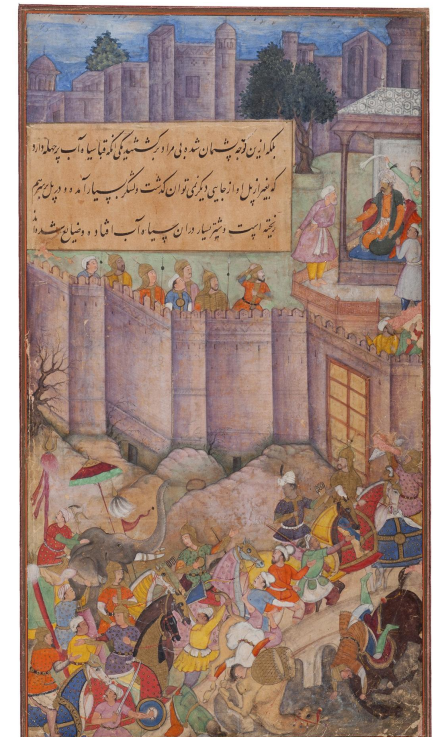 بلکه ازین توجه پشیمان شده بی مراد برگشتند یکی آنکه قبا سیاه آب پر چهله دارد
که بغیر از پل از جایی دیگر نمی توان گذشت و لشکر بسیار آمد و در پل بر سر هم
ریخته است و شتر بسیار در آن سیاه آب افتاده و ضایع شده اند